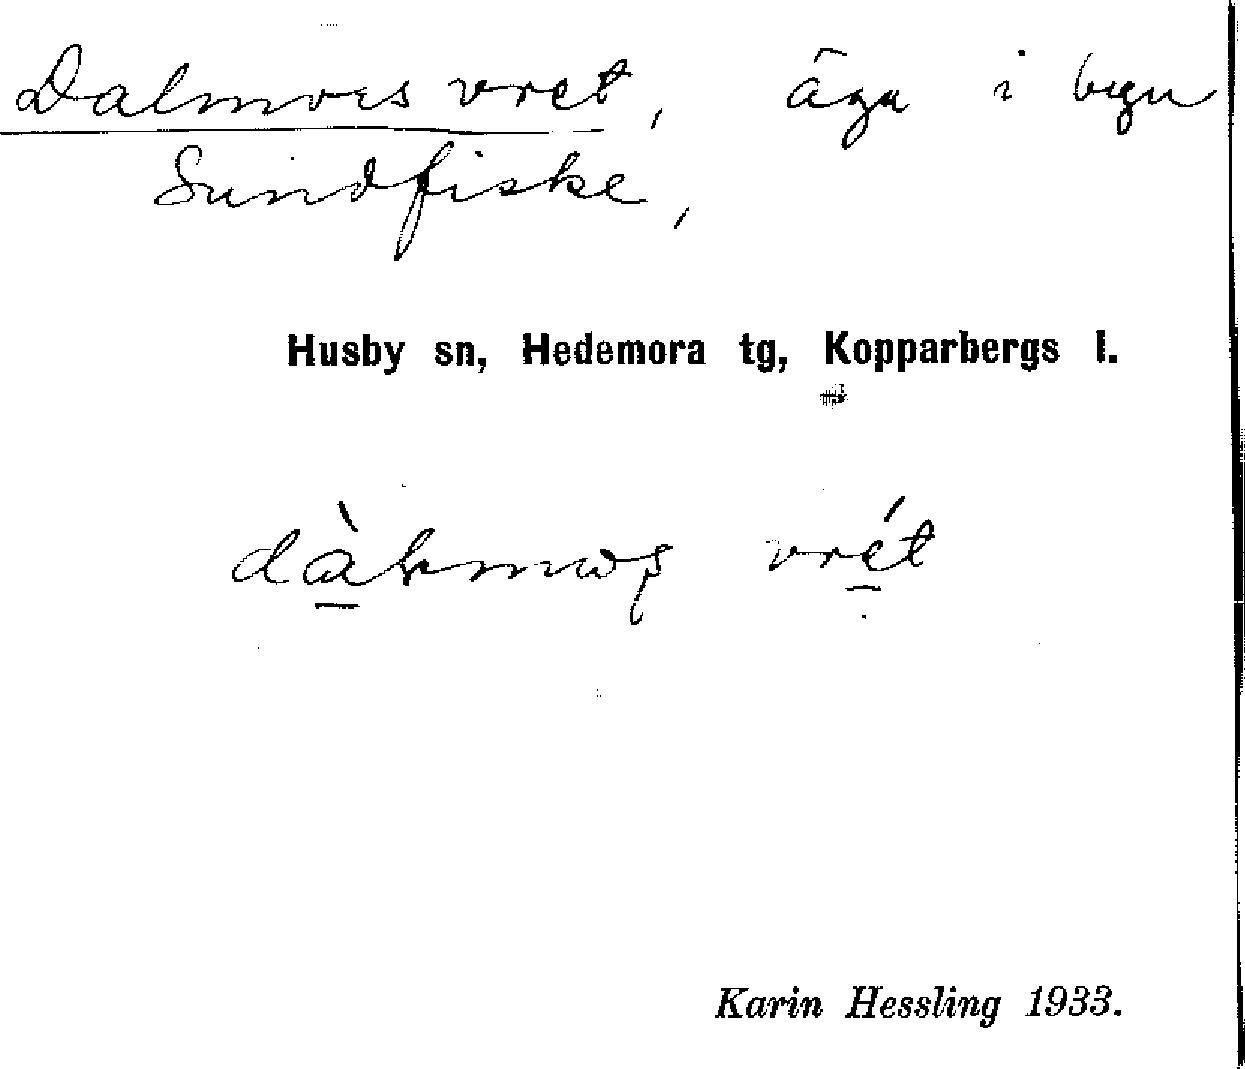 Dalmoes vret, äga i byn
Sundfiske,
Husby sn, Hedemora tg, Kopparbergs l.
vrét
Karin Hessling 1933.